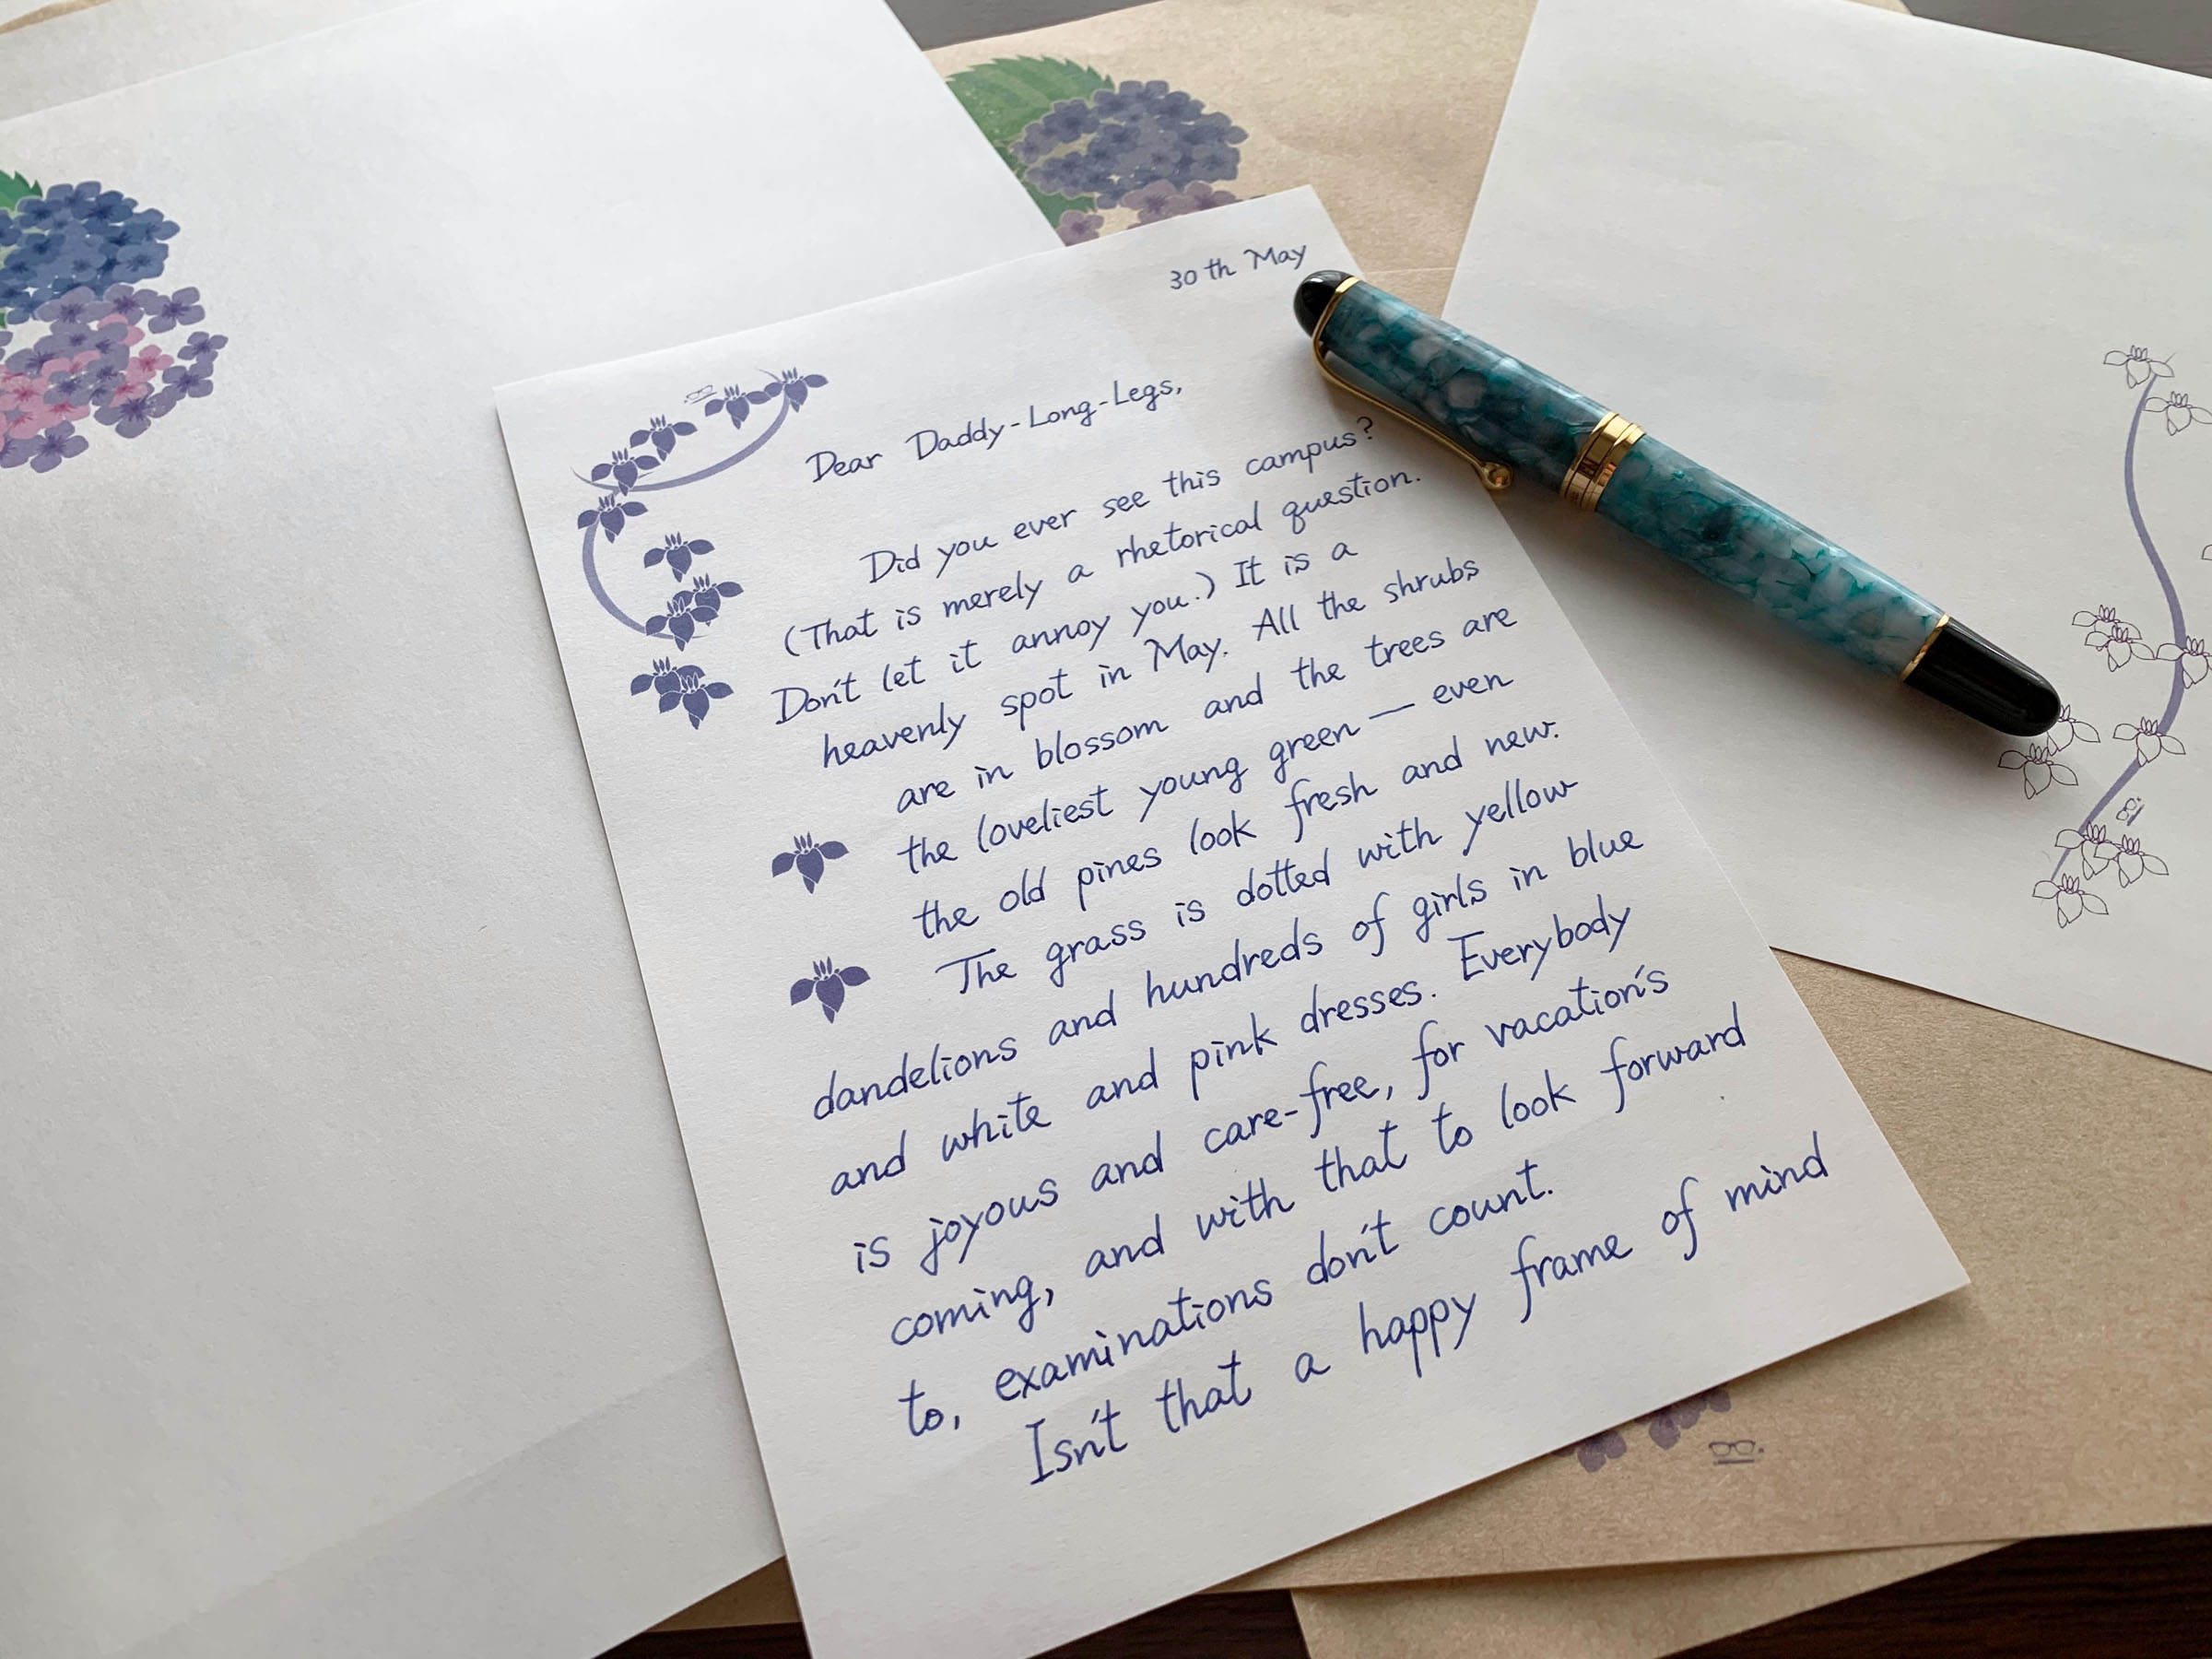 30th May
Dear Daddy-Long-Legs,
Did you ever see this campus?
(That is merely a rhetorical question.
Don't let it annoy you.) It is a
heavenly spot in May. All the shrubs
are in blossom and the trees are
the loveliest young green — even
the old pines look fresh and new.
The grass is dotted with yellow
dandelions and hundreds of girls in blue
and white and pink dresses. Everybody
is joyous and care-free, for vacation's
coming, and with that to look forward
to, examinations don't count.
Isn't that a happy frame of mind